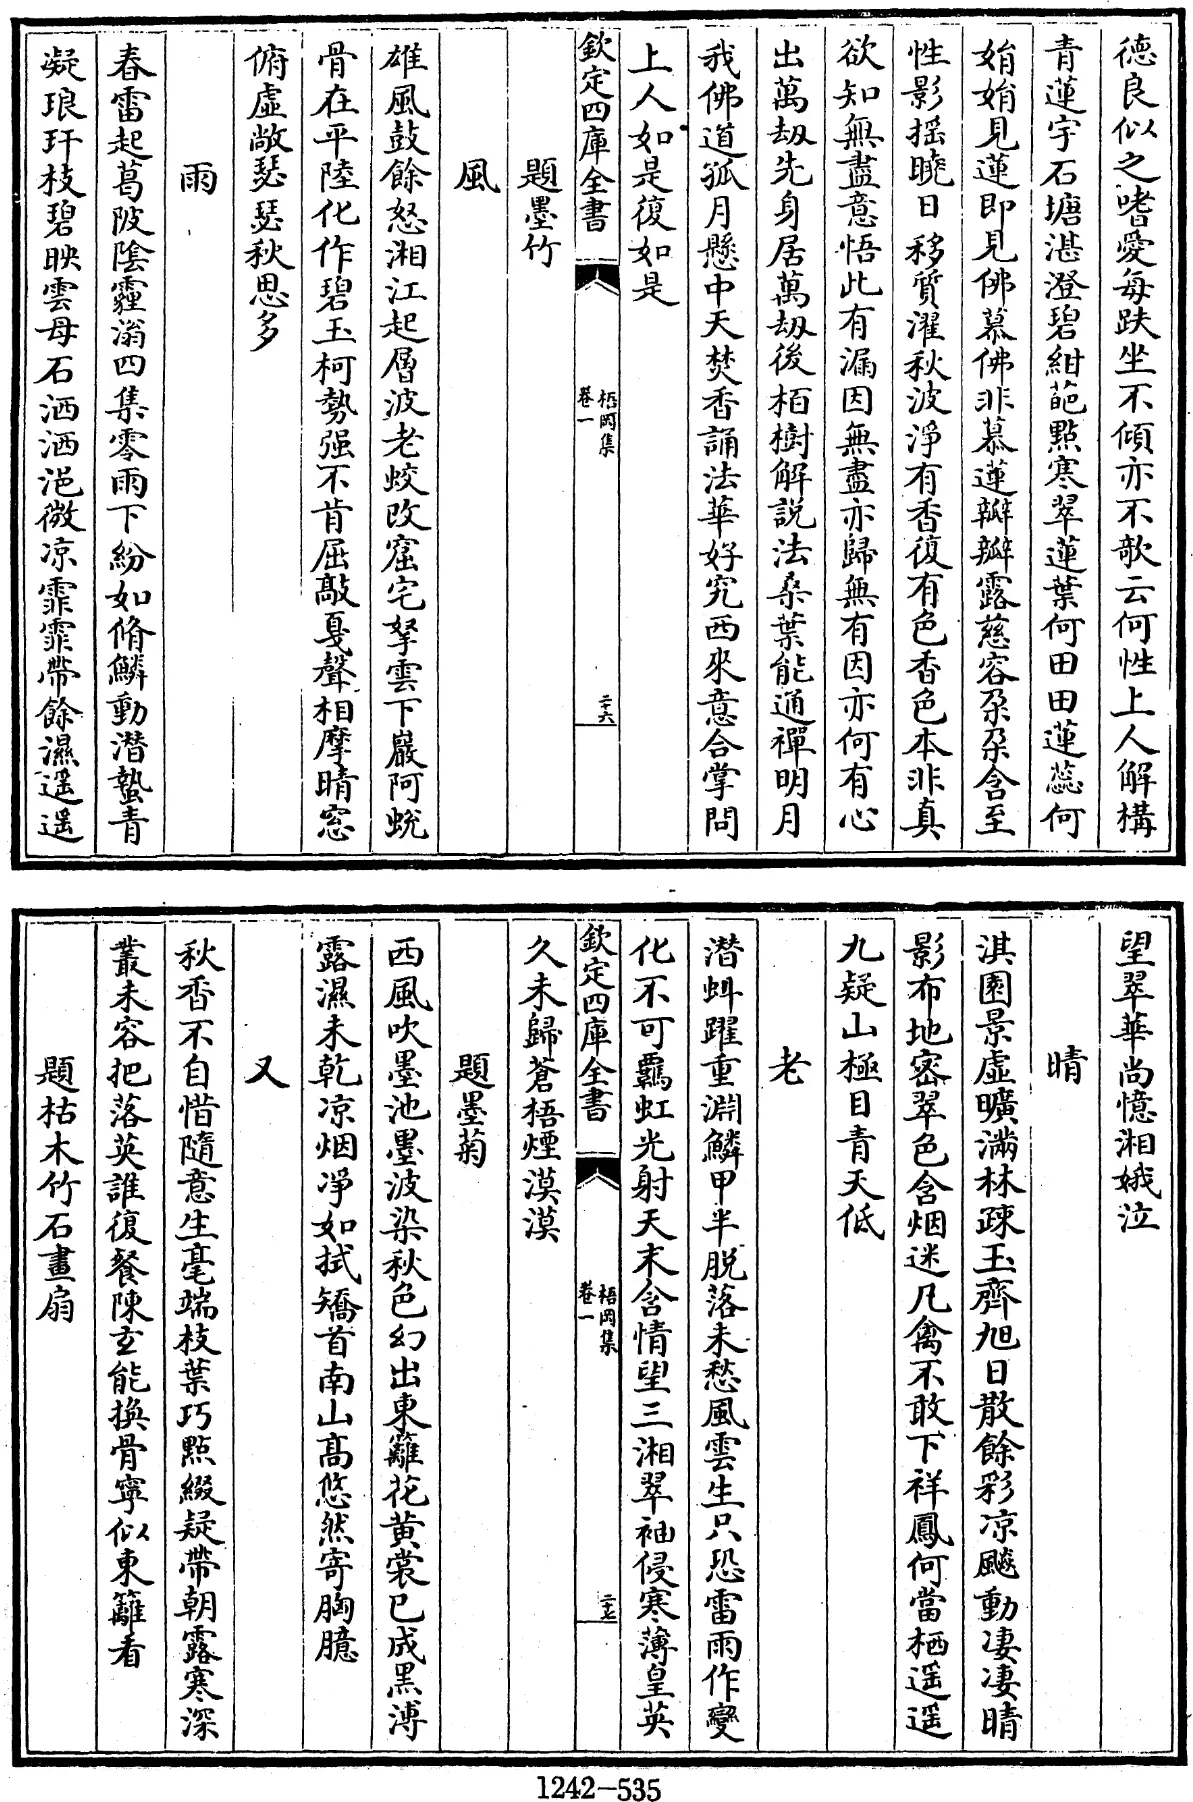 德良似之嗜愛每趺坐不傾亦不歌云何性上人解構
青蓮宇石塘湛澄碧紺葩點寒翠蓮葉何田田蓮蕊何
娟娟見蓮即見佛慕佛非慕蓮瓣瓣露慈容朶朶含至
性影揺曉日移質濯秋波淨有香復有色香色本非真
欲知無盡意悟此有漏因無盡亦歸無有因亦何有心
出萬劫先身居萬劫後栢樹解説法桑葉能通禪明月
我佛道孤月懸中天焚香誦法華好究西來意合掌問
上人如是復如是
欽定四庫全書
梧岡集
卷一
二十六
題墨竹
風
雄風鼓餘怒湘江起層波老蛟改窟宅拏雲下巖阿蛻
骨在平陸化作碧玉柯勢强不肯屈敲戛聲相摩晴窓
俯虛敞瑟瑟秋思多
雨
春雷起葛陂隂霾滃四集零雨下紛如脩鱗動潛蟄青
凝琅玕枝碧映雲母石洒洒浥微凉霏霏帶餘濕遥遥
望翠華尚憶湘娥泣
晴
淇園景虛曠滿林踈玉齊旭日散餘彩凉飈動凄凄晴
影布地密翠色含烟迷凡禽不敢下祥鳳何當栖遥遥
九疑山極目青天低
老
潛虯躍重淵鱗甲半脱落未愁風雲生只恐雷雨作變
化不可覊虹光射天末含情望三湘翠袖侵寒薄皇英
欽定四庫全書
梧岡集
卷一
二十七
久未歸蒼梧煙漠漠
題墨菊
西風吹墨池墨波染秋色幻出東籬花黄裳已成黑溥
露濕未乾凉烟凈如拭矯首南山髙悠然寄胸臆
又
秋香不自惜隨意生毫端枝葉巧點綴疑帶朝露寒深
叢未容把落英誰復餐陳𤣥能換骨寧似東籬看
題枯木竹石畫扇
1242-535